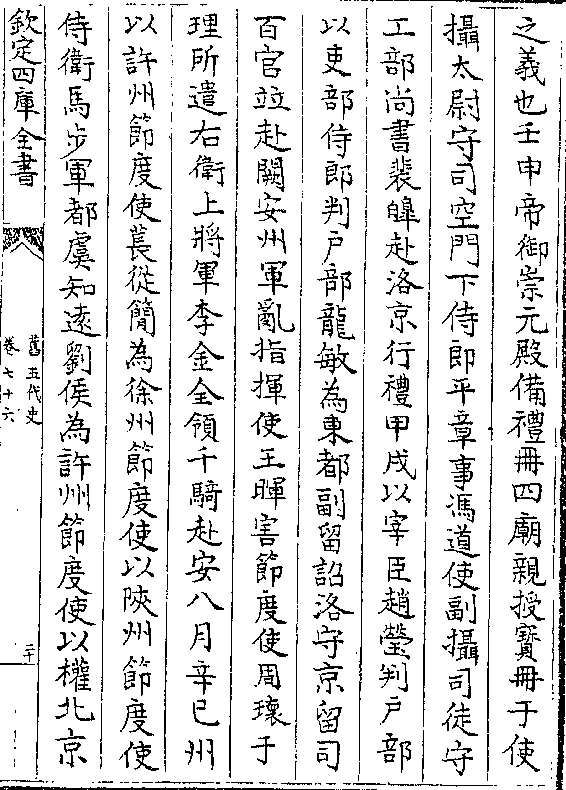 之義也壬申帝御崇元殿備禮冊四廟親授寶冊于使
攝太尉守司空門下侍郎平章事馮道使副攝司徒守
工部尚書裴皥赴洛京行禮甲戌以宰臣趙瑩判戶部
以吏部侍郎判戶部龍敏為東都副留詔洛守京留司
百官竝赴闕安州軍亂指揮使王暉害節度使周瓌于
理所遣右衛上將軍李金全領千騎赴安八月辛巳州
以許州節度使萇從簡為徐州節度使以陝州節度使
侍衛馬步軍都虞知遠劉侯為許州節度使以權北京
欽定四庫全書
舊五代史
卷七十六
二十